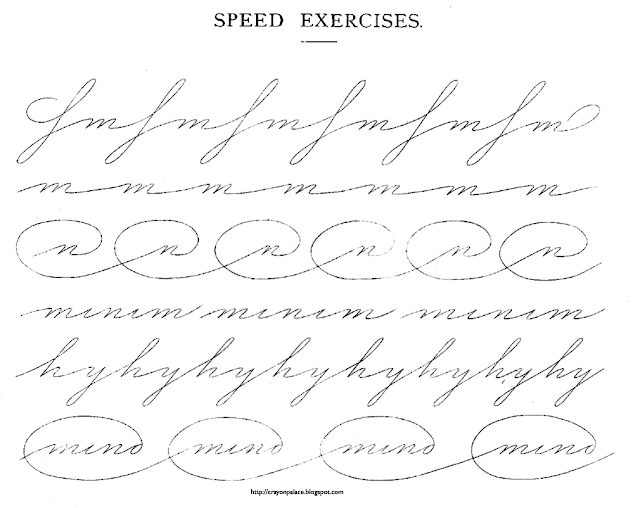 SPEED EXERCISES.
fm fm fm fm fm fm
m m m m m m m
n n n n n n
minim minim minim
hyhyhyhyhyhyhy
mind mind mind mind
http://crayonpalace.blogspot.com